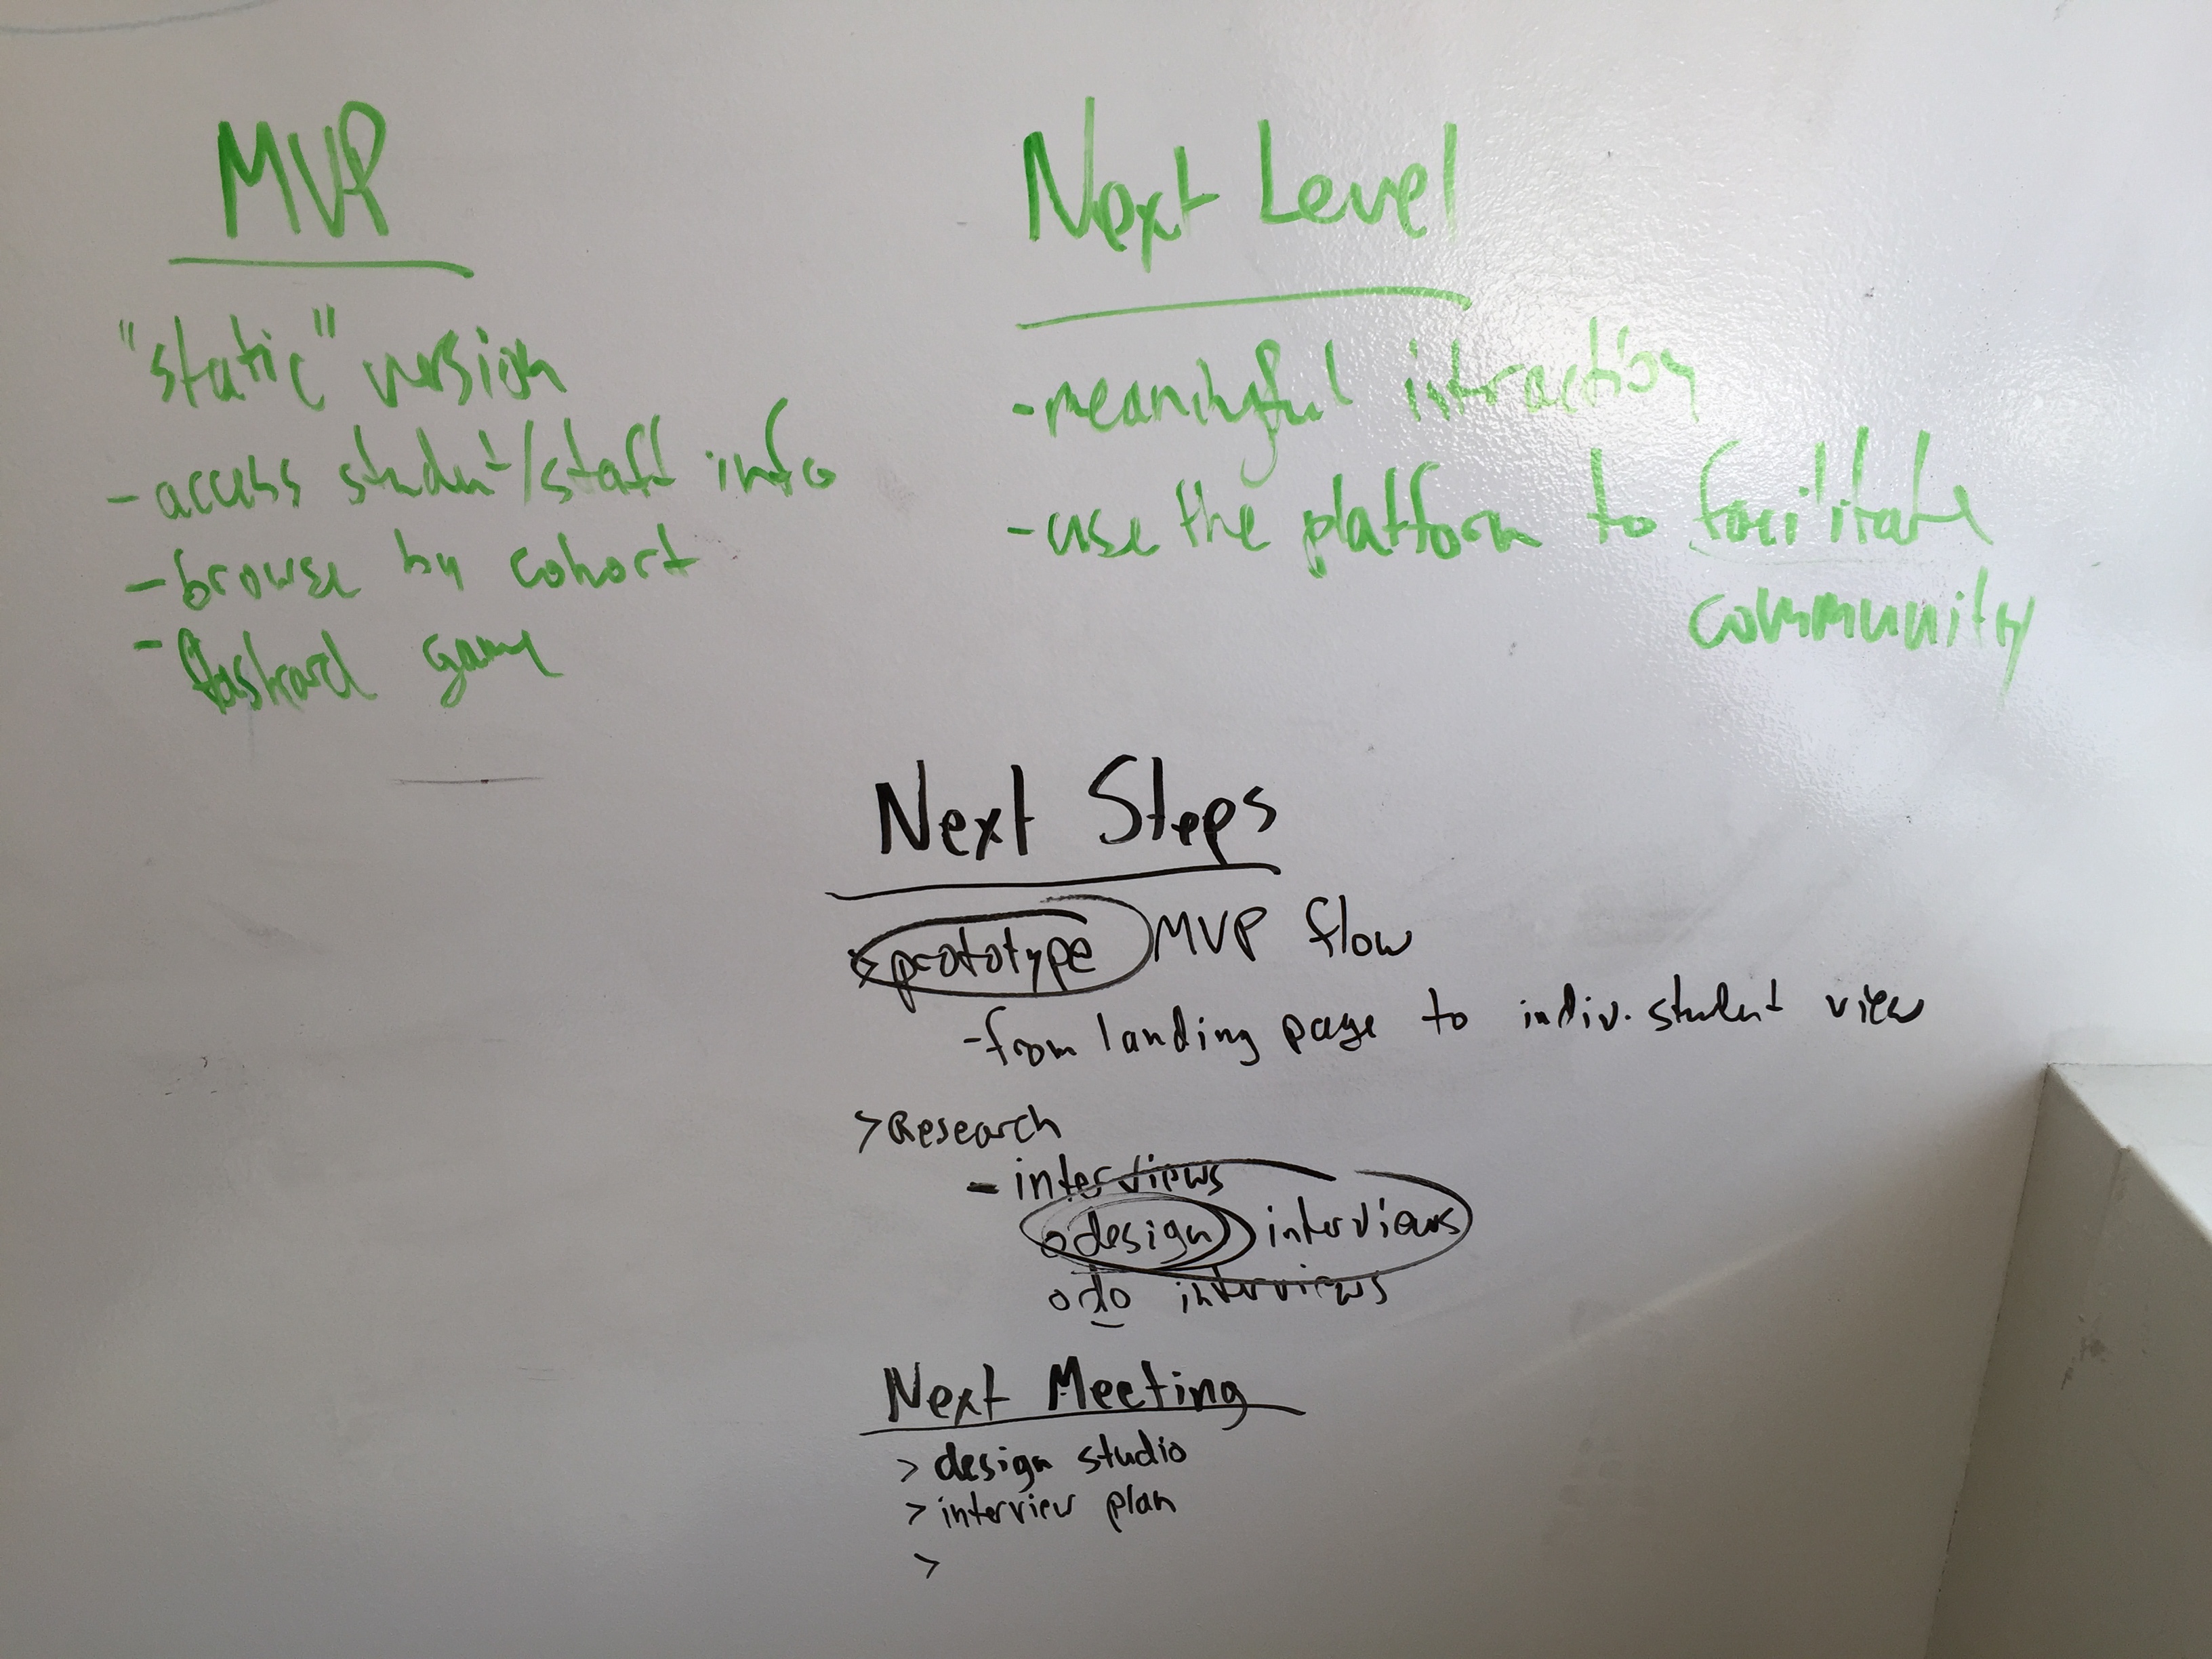 MVP
"static" version
- access student/staff info
- browse by cohort
- flashcard game
Next Level
- meaningful interaction
- use the platform to facilitate
community
Next Steps
> prototype MVP flow
- from landing page to indiv. student view
> Research
- interviews
o design interviews
o do interviews
Next Meeting
> design studio
> interview plan
>